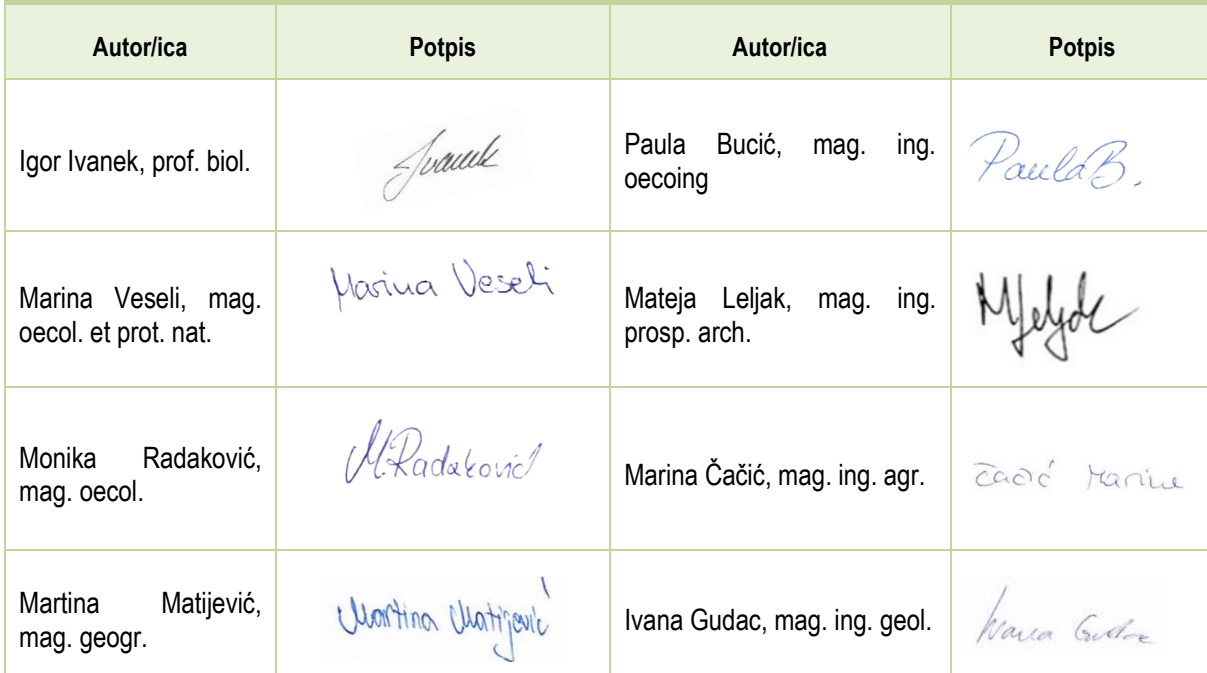 Autor/ica Potpis Autor/ica Potpis
Igor Ivanek, prof. biol.
Ivanek
Paula Bucić, mag. ing.
oecoing
PaulaB.
Marina Veseli, mag.
oecol. et prot. nat.
Marina Veseli
Mateja Leljak, mag. ing.
prosp. arch.
Monika Radaković,
mag. oecol.
M.Radaković
Marina Čačić, mag. ing. agr.
Čačić Marina
Martina Matijević,
mag. geogr.
Martina Matijević
Ivana Gudac, mag. ing. geol.
Ivana Gudac